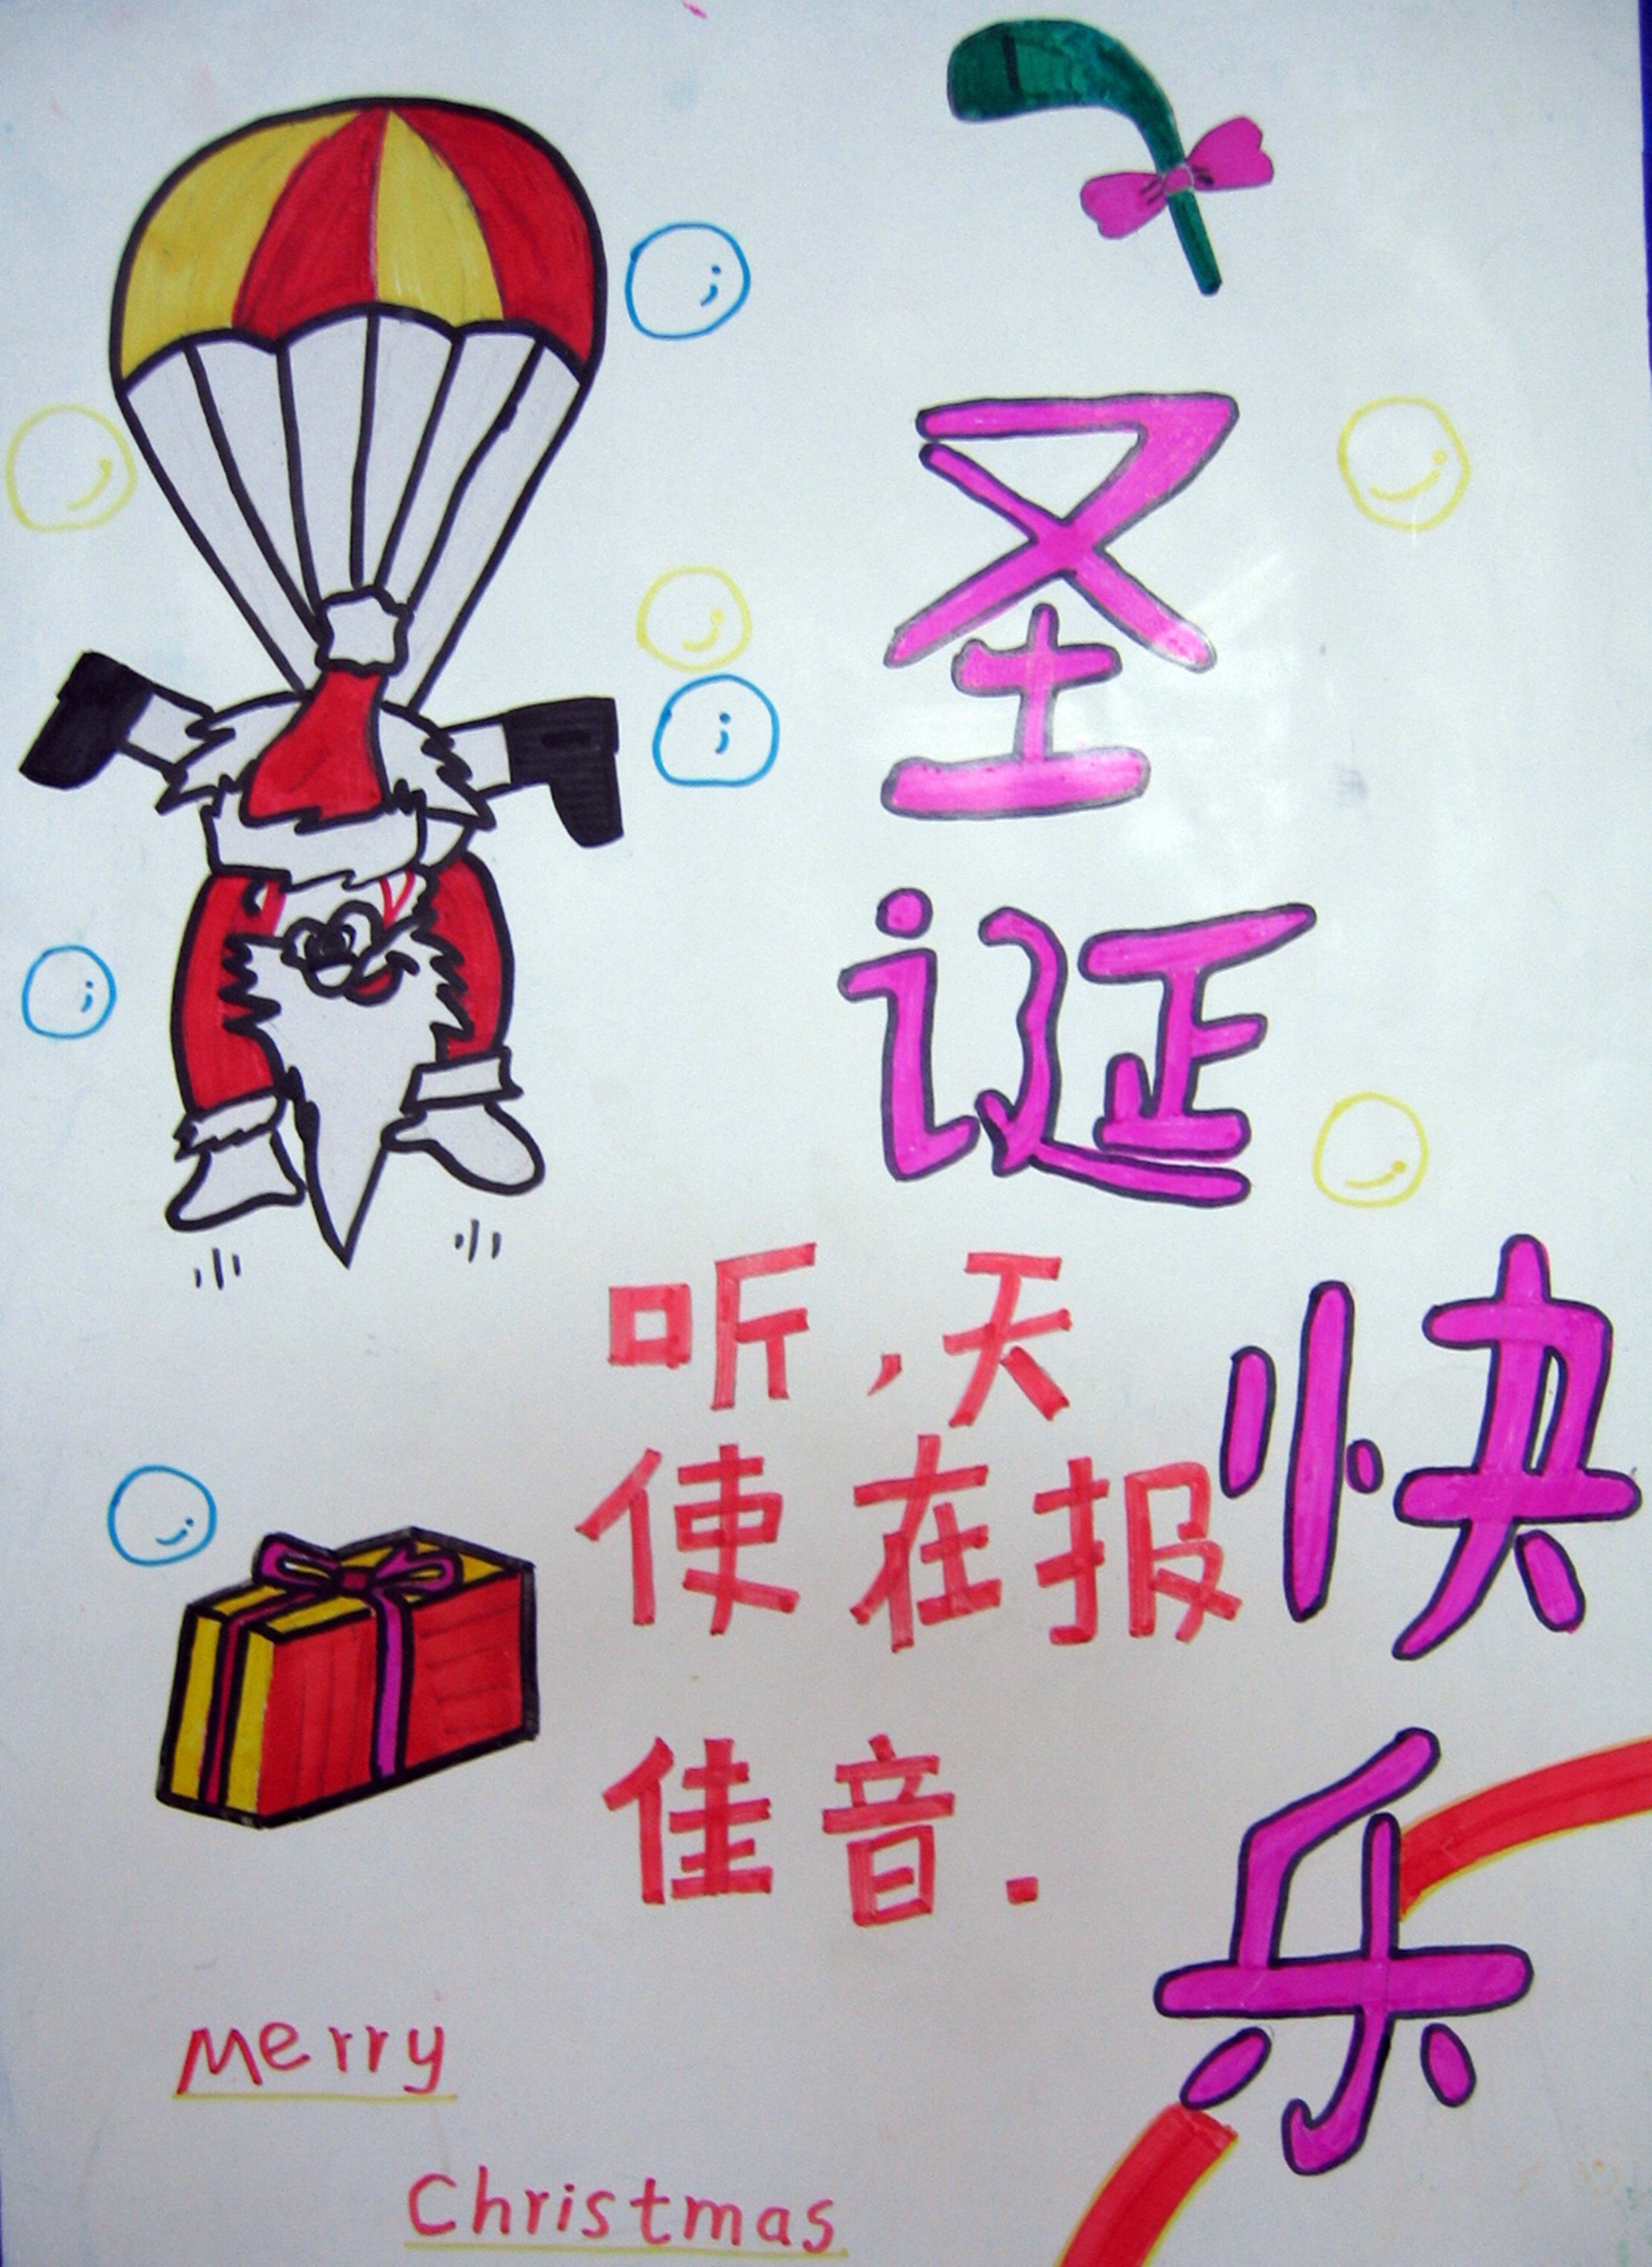 圣诞快乐
听,天
使在报
佳音.
Merry
Christmas